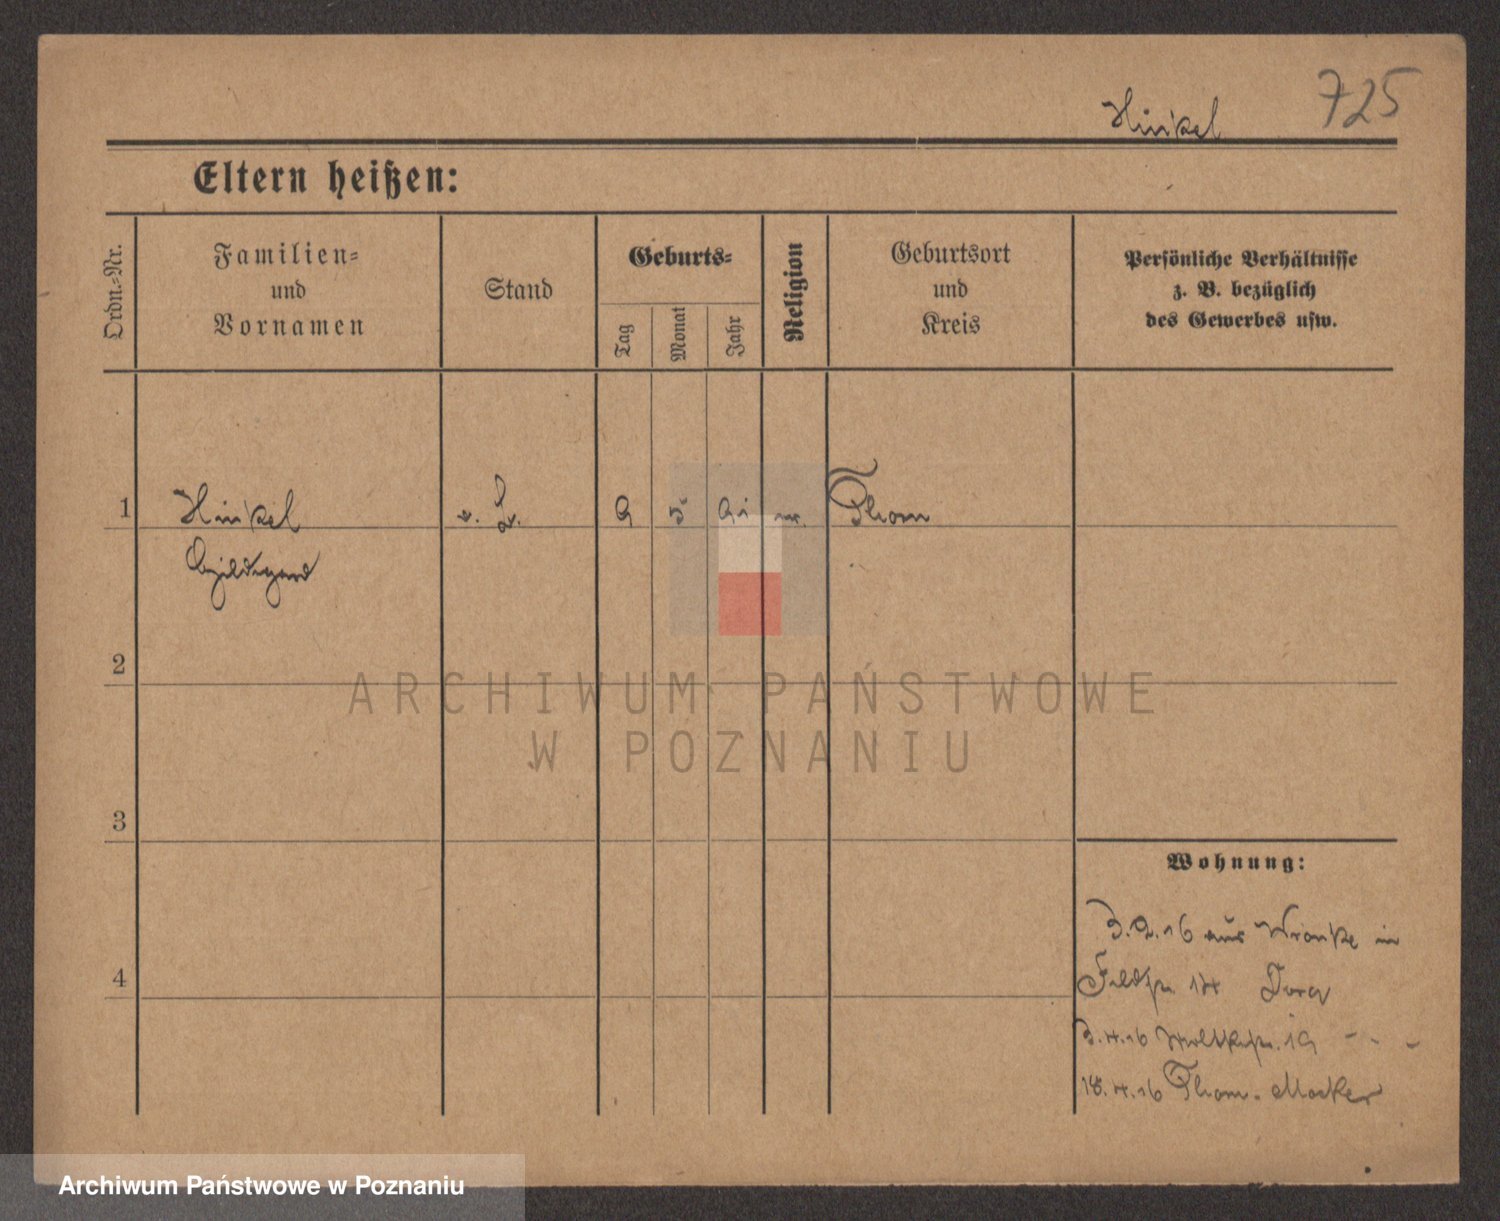 Hinkel 725
Eltern heißen:
Ordn.-Nr.
Familien-
und
Vornamen
Stand
Geburts-
Tag
Monat
Jahr
Religion
Geburtsort
und
Kreis
Persönliche Verhältnisse
z. B. bezüglich
des Gewerbes usw.
1 Hinkel 9 5 91 Thorn
Hildegard
2
ARCHIWUM PAŃSTWOWE
W POZNANIU
3
Wohnung:
3.2.16 aus Wronke in
4
Feldstr. 14
3.4.16 Moltkestr. 19 - - -
18.4.16 Thorn-Mocker
Archiwum Państwowe w Poznaniu